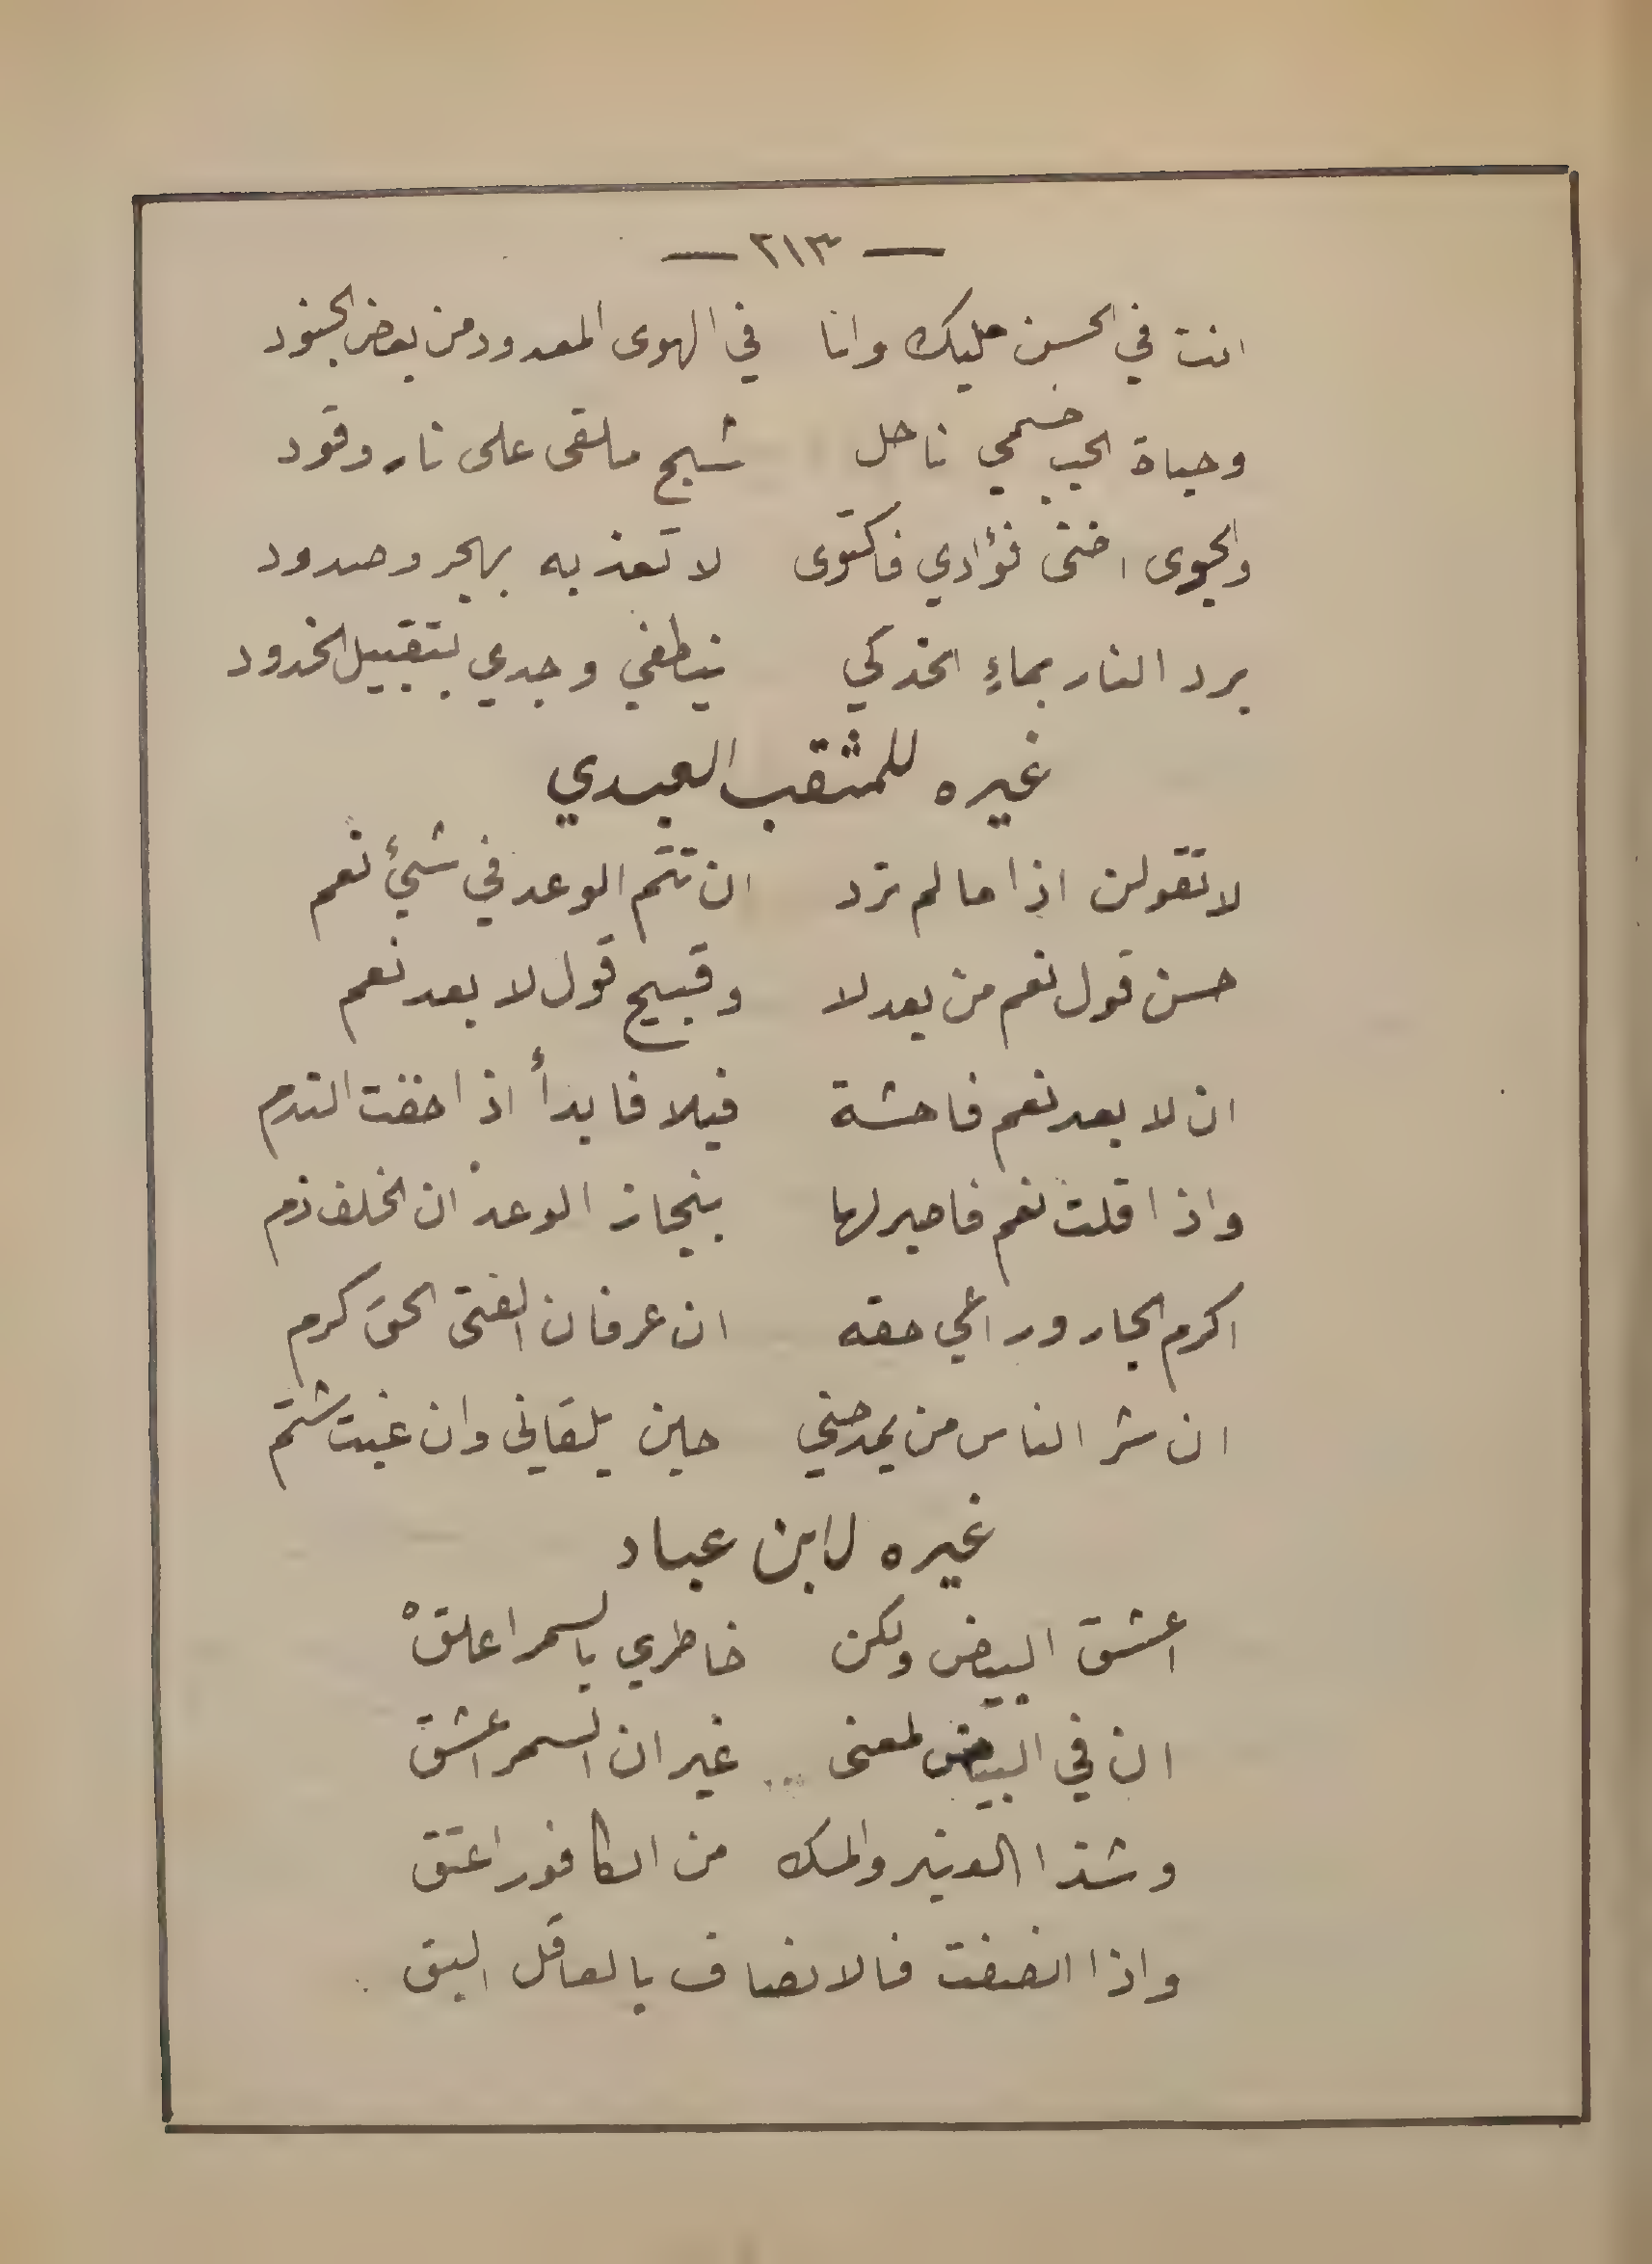 — ٢١٣ —
انت في الحسن مليك وانا في الهوى المعدود من بعض الجنود
وحياة الحب جسمي ناحل شبح ملقى على نار وقود
والجوى اضنى فؤادي فاكتوى لا تعذبه بهجر وصدود
برد النار بماءِ الخد كي ينطفي وجدي بتقبيل الخدود
غيره للمثقب العبدي
لا تقولن اذا ما لم ترد ان تتم الوعد في شيئ نعم
حسن قول نعم من بعد لا وقبيح قول لا بعد نعم
ان لا بعد نعم فاحشة فبلا فابدأ اذا خفت الندم
واذا قلت نعم فاصبر لها بنجاز الوعد ان الخلف ذم
اكرم الجار وراعي حقه ان عرفان الفتى الحق كرم
ان شر الناس من يمدحني حين يلقاني وان غبت شتم
غيره لابن عباد
اعشق البيض ولكن خاطري بالسمر اعلقْ
ان في البيض لمعنى ... غير ان السمر اعشق
وشذا العنبر والمسك من الكافور اعتق
واذا انصفت فالانصاف بالعاقل اليق